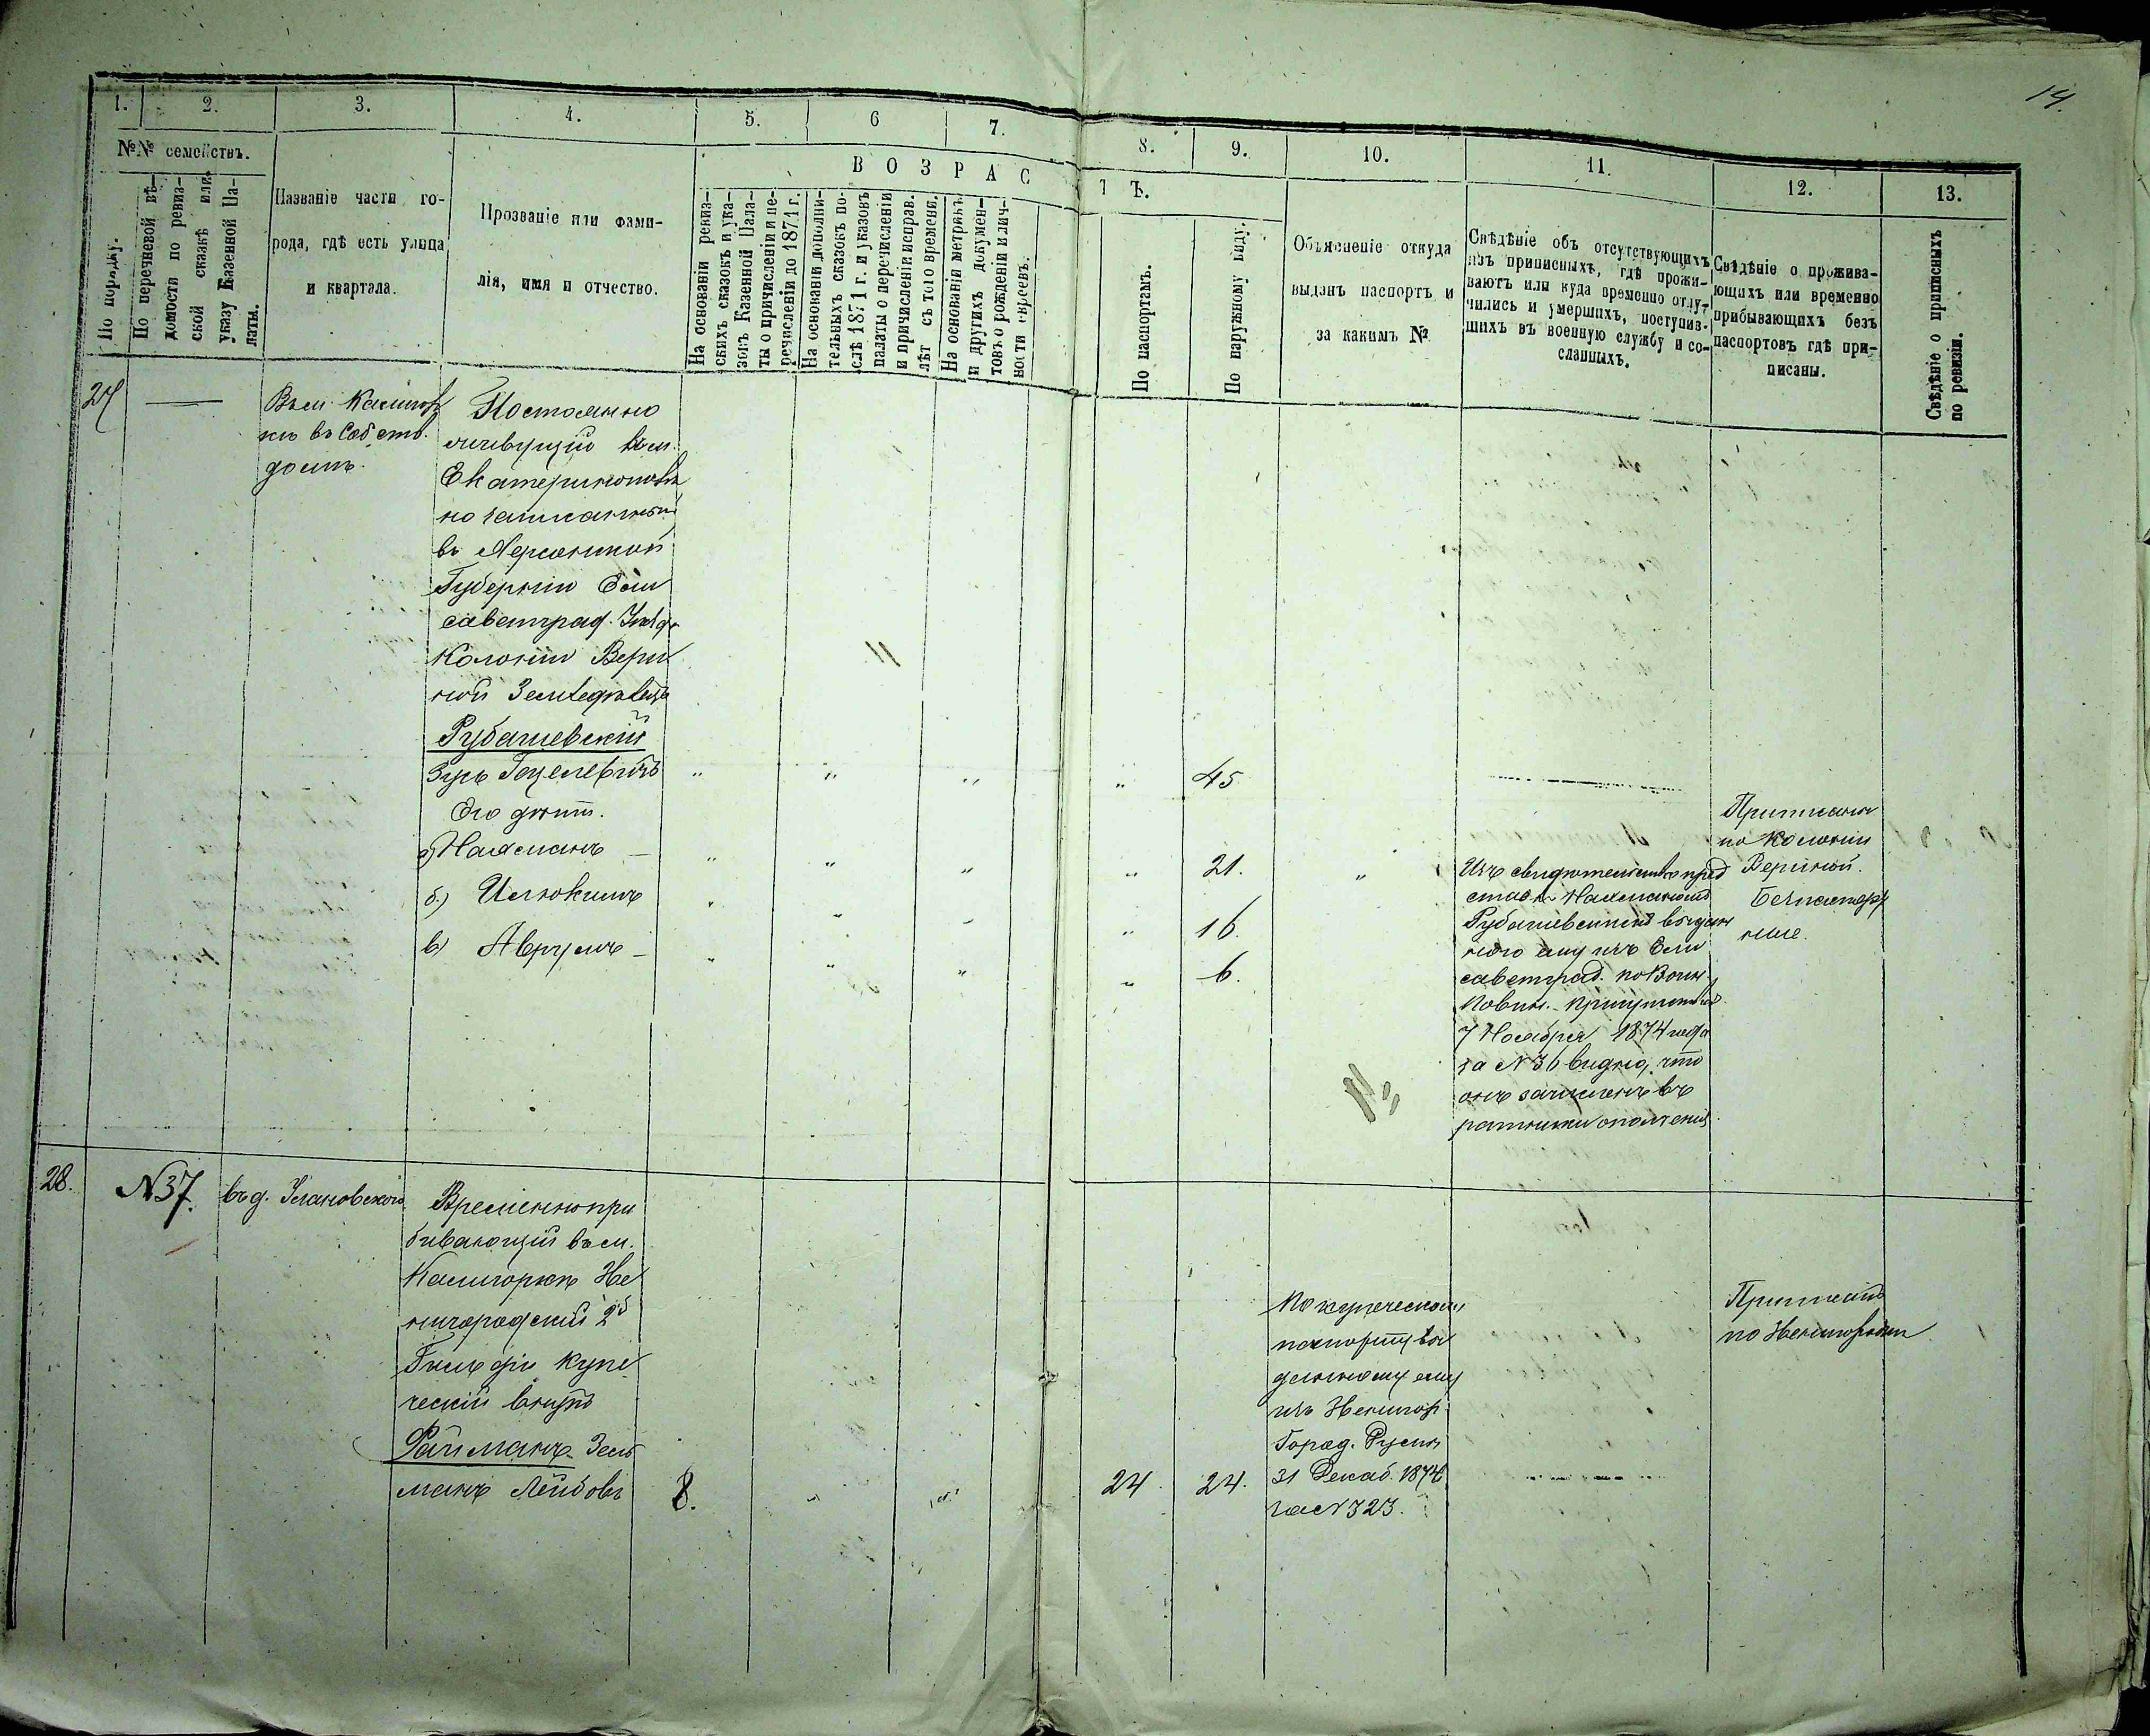 14.
1. 2. 3. 4. 5. 6 7. 8. 9. 10. 11. 12. 13.
№№ семействъ.
По порядку.
По перечневой вѣ-
домости по ревиз-
ской сказкѣ или
указу Казенной Па-
латы.
Названіе части го-
рода, гдѣ есть улица
и квартала.
Прозваніе или фами-
лія, имя и отчество.
ВОЗРАС
ТЪ.
На основаніи ревиз-
скихъ сказокъ и ука-
зовъ Казенной Пала-
ты о причисленіи и пе-
речисленіи до 1871 г.
На основаніи дополни-
тельныхъ сказокъ по-
слѣ 1871 г. и указовъ
палаты о перечисленіи
и причисленіи исправ.
лѣт съ того времени.
На основаніи метрикъ
и другихъ докумен-
товъ о рожденіи и лич-
ности евреевъ.
По паспортамъ.
По наружному виду.
Объясненіе откуда
выданъ паспортъ и
за какимъ №
Свѣдѣніе объ отсутствующихъ
изъ приписныхъ, гдѣ прожи-
ваютъ или куда временно отлу-
чились и умершихъ, поступив-
шихъ въ военную службу и со-
сланныхъ.
Свѣдѣніе о прожива-
ющихъ или временно
прибывающихъ безъ
паспортовъ гдѣ при-
писаны.
Свѣдѣніе о приписныхъ
по ревизіи.
27
Въ м. Калигор
кѣ въ Собств.
домѣ.
Постоянно
живущій въ м.
Екатеринополѣ
но записанный
въ Херсонской
Губерніи Ели
саветград. Уѣзд
Колоніи
Земледѣлецъ
Рубашевскій
Гецелевичъ " " " " 45
Его дѣти.
а) Нахманъ " " " " 21. "
б.) " " " " 16.
в) Аврумъ " " " " 6.
Изъ свидѣтельства пред
став. Нахманомъ
Рубашевскимъ выдан
ного ему изъ Ели
саветград. по Воин.
Повин. Присутствія
7 Ноября 1874 года
за N 36 видно, что
онъ зачисленъ въ
ратники ополченія.
Приписаны
по Колоніи
Безпаспорт
ные.
28.
N 37.
въ д. Улановского
Временно при
бивающій въ м.
Калигоркѣ Зве
нигородскій 2й
Гильдіи Купе
ческій внукъ
Файманъ Зель
манъ Лейбовъ 8. " " 24. 24.
По купеческому
паспорту вы
данному ему
изъ Звенигор.
Город. Думы
31 Декаб. 1874
за N 323.
Приписанъ
по Звенигородки